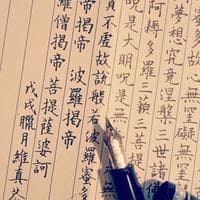 心無罣礙無罣礙
夢想究竟涅槃三世諸佛
阿耨多羅三藐三菩提
呪是大明呪是無
真不虛故說般若波羅蜜多
帝揭帝 波羅揭帝
羅僧揭帝 菩提薩婆訶
戊戌臘月維真